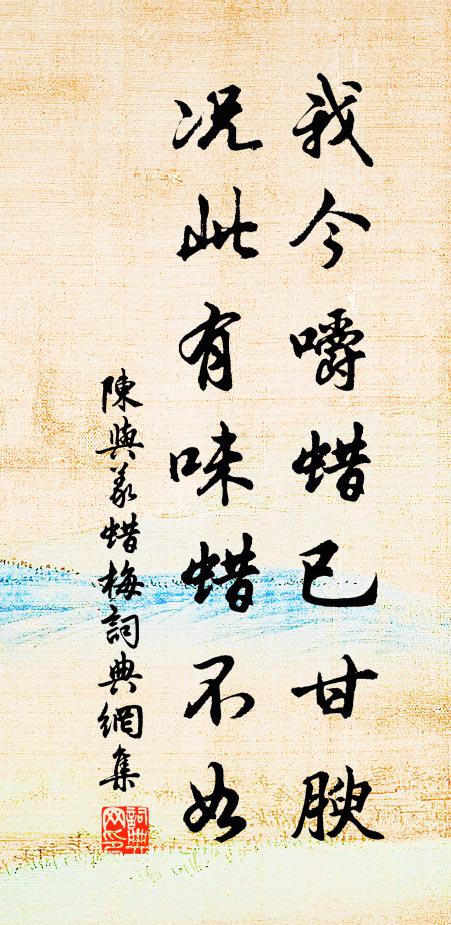 我今嚼蜡已甘腴
况此有味蜡不如
陳與義蜡梅詞典網集